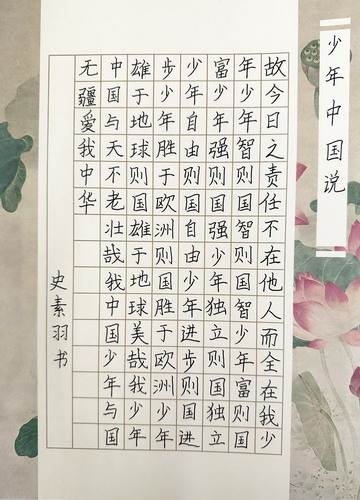 少年中国说
故今日之责任不在他人而全在我少
年少年智则国智则国智少年富则国
富少年强则国强少年独立则国独立
少年自由则国自由少年进步则国进
步少年胜于欧洲则国胜于欧洲少年
雄于地球则国雄于地球美哉我少年
中国与天不老壮哉我中国少年与国
无疆爱我中华
史素羽书